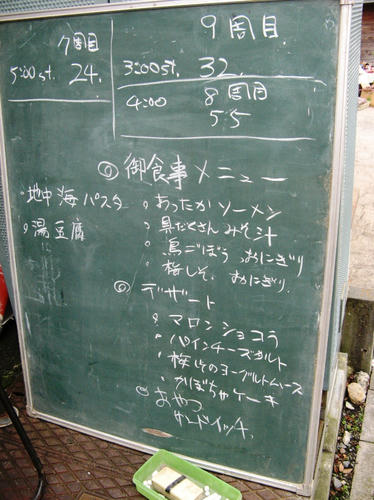 7周目
5:00st. 24.
9周目
3:00st. 32.
4:00 8周目
5.5
◎御食事メニュー
・地中海パスタ
・湯豆腐
・あったかソーメン
・具だくさんみそ汁
・鳥ごぼう おにぎり
・梅しそ おにぎり.
◎デザート
・マロンショコラ
・パインチーズタルト
・梅のヨーグルトムース
・かぼちゃケーキ
◎おやつ
サンドイッチ